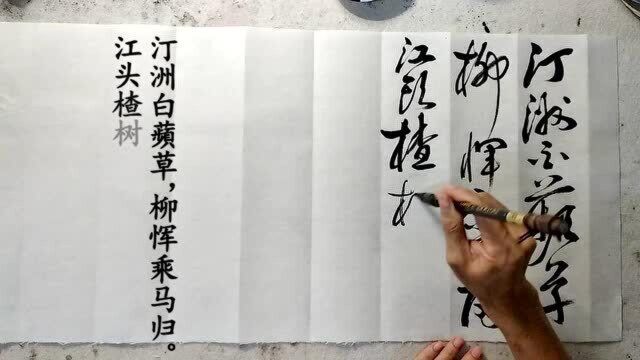 汀洲白蘋草
柳恽
江头楂
汀洲白蘋草，柳恽乘马归。
江头楂树